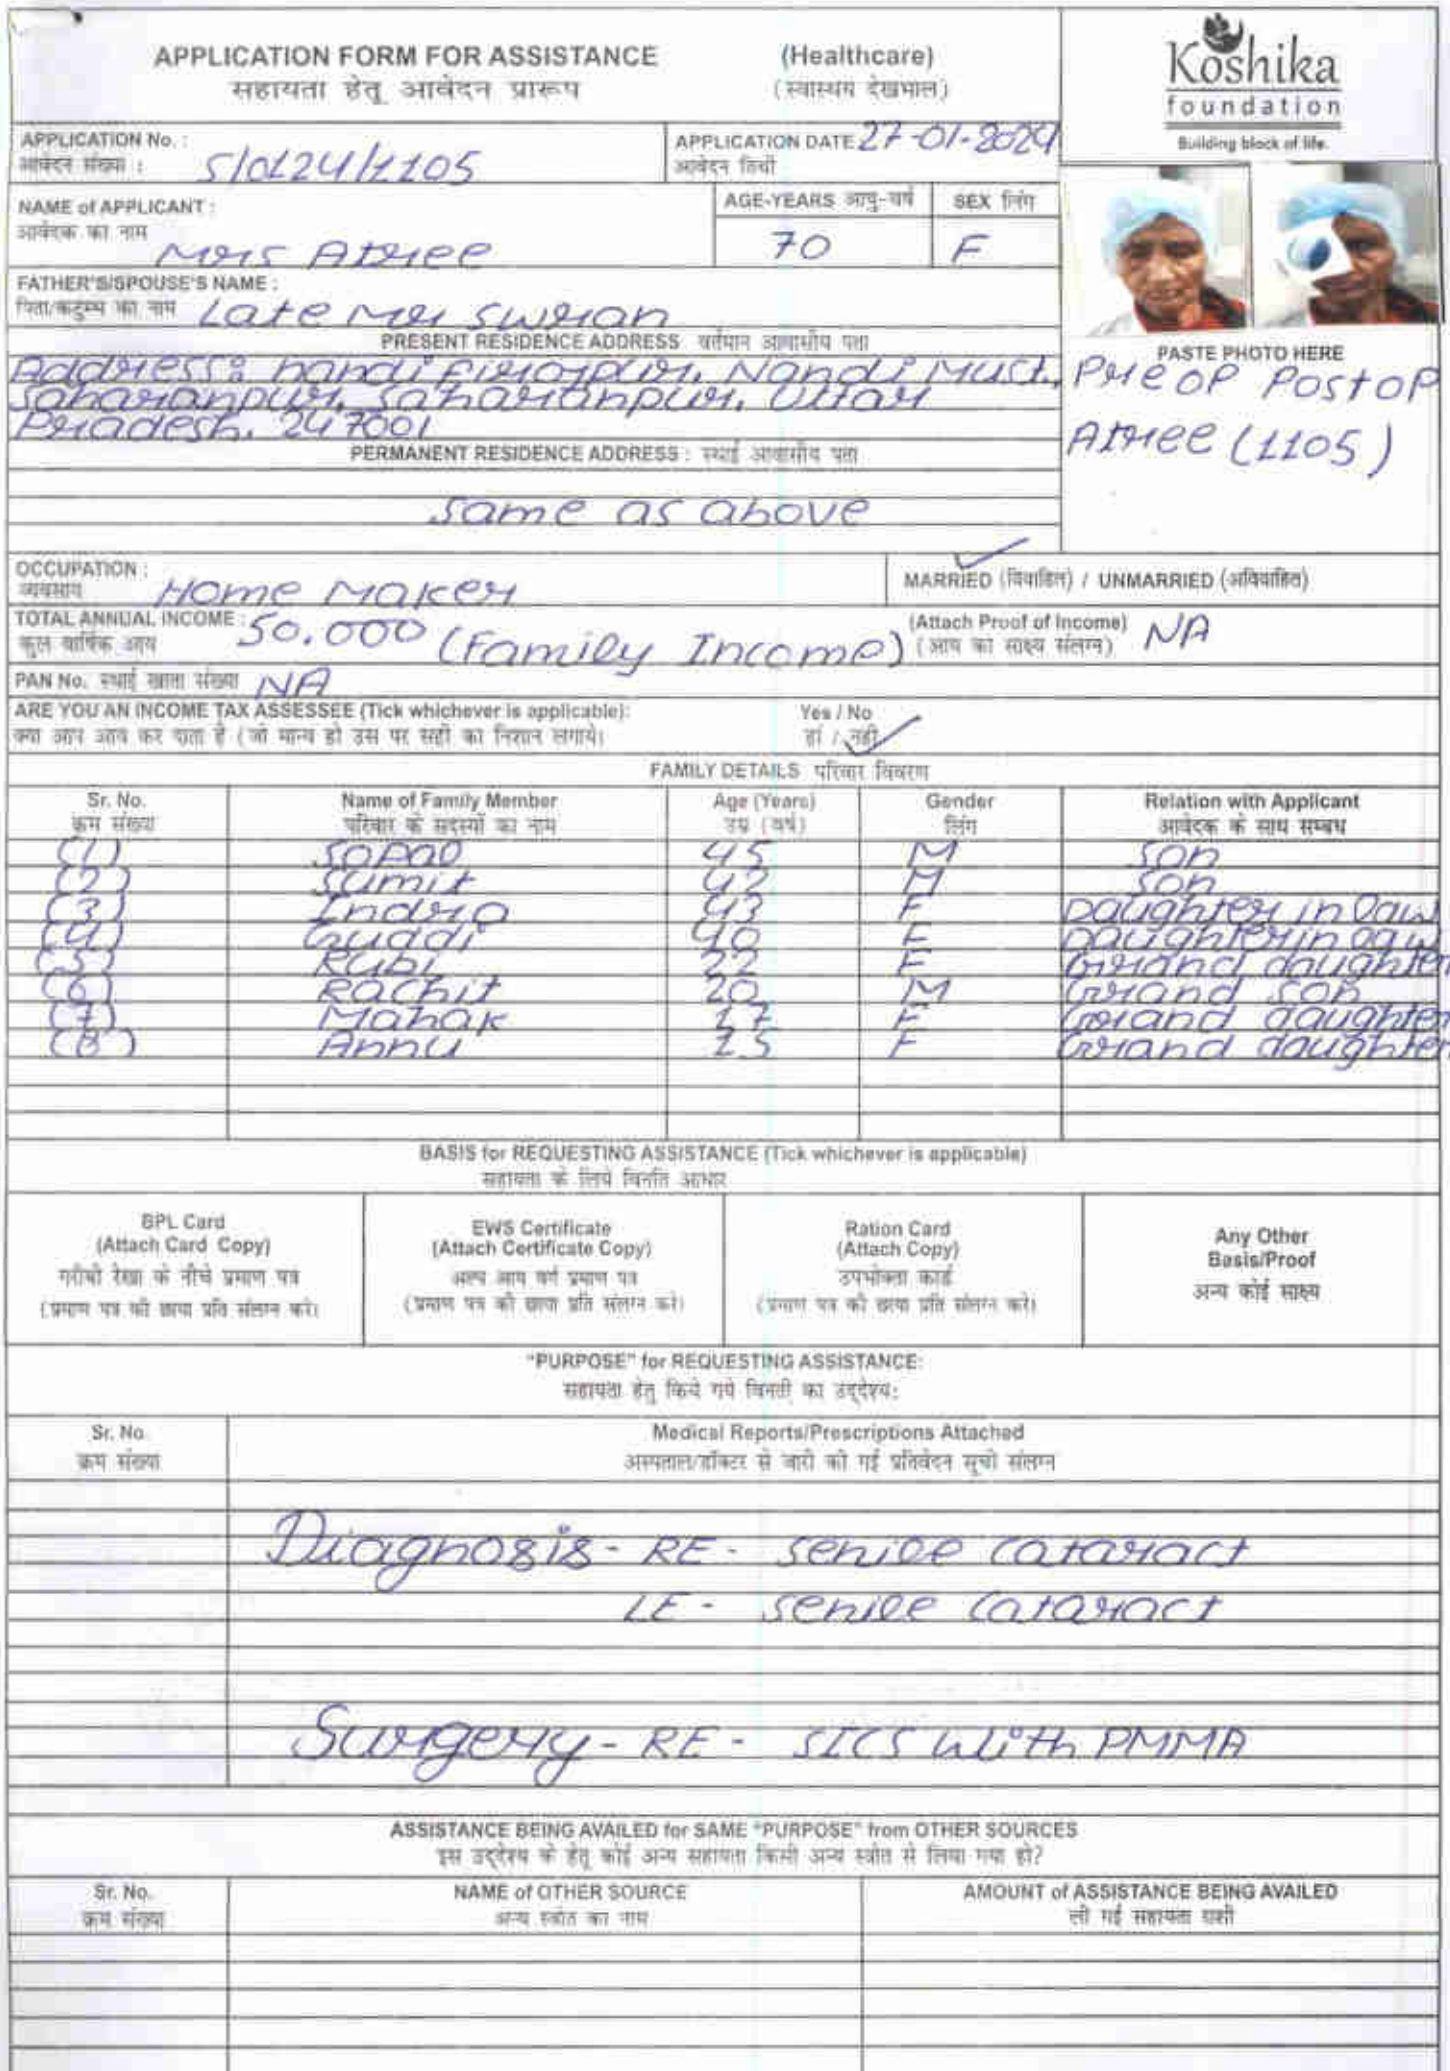 APPLICATION FORM FOR ASSISTANCE (Healthcare)
सहायता हेतू आवेदन प्रारूप (स्वास्थय देखभाल)
Koshika
foundation
Building block of life.
APPLICATION No. :
आवेदन संख्या :
APPLICATION DATE 27-01-2024
आवेदन तिथी
NAME of APPLICANT :
आवेदक का नाम
Mrs Atree
AGE-YEARS आयु-वर्ष
70
SEX लिंग
F
FATHER'S/SPOUSE'S NAME :
पिता/कटुम्ब का नाम Late Mr Swran
PRESENT RESIDENCE ADDRESS वर्तमान आवासीय पता
Address: nandi firojpur, Nandi Must.,
Saharanpur, Saharanpur, Uttar
Pradesh, 247001
PASTE PHOTO HERE
Pre OP Post OP
Atree (1105)
PERMANENT RESIDENCE ADDRESS : स्थाई आवासीय पता
Same as above
OCCUPATION :
व्यवसाय Home Maker
MARRIED (विवाहित) / UNMARRIED (अविवाहित)
TOTAL ANNUAL INCOME : 50.000 (Family Income)
कुल वार्षिक आय
(Attach Proof of Income) NA
(आय का साक्ष्य संलग्न)
PAN No. स्थाई खाता संख्या NA
ARE YOU AN INCOME TAX ASSESSEE (Tick whichever is applicable): Yes / No
क्या आप आय कर दाता है (जो मान्य हो उस पर सही का निशान लगाये। हां / नहीं
FAMILY DETAILS परिवार विवरण
Sr. No. Name of Family Member Age (Years) Gender Relation with Applicant
क्रम संख्या परिवार के सदस्यों का नाम उम्र (वर्ष) लिंग आवेदक के साथ सम्बंध
(1) Sopal 45 M Son
(2) Sumit 42 M Son
(3) Indra 43 F Daughter in law
(4) Guddi 40 F Daughter in law
(5) Rubi 22 F Grand daughter
(6) Rachit 20 M Grand Son
(7) Mahak 17 F Grand daughter
(8) Annu 15 F Grand daughter
BASIS for REQUESTING ASSISTANCE (Tick whichever is applicable)
सहायता के लिये विनति आधार
BPL Card
(Attach Card Copy)
गरीबी रेखा के नीचे प्रमाण पत्र
(प्रमाण पत्र की छाया प्रति संलग्न करे।
EWS Certificate
(Attach Certificate Copy)
अल्प आय वर्ग प्रमाण पत्र
(प्रमाण पत्र की छाया प्रति संलग्न करे।
Ration Card
(Attach Copy)
उपभोक्ता कार्ड
(प्रमाण पत्र की छाया प्रति संलग्न करे।
Any Other
Basis/Proof
अन्य कोई साक्ष्य
"PURPOSE" for REQUESTING ASSISTANCE:
सहायता हेतु किये गये विनती का उद्देश्य:
Sr. No. Medical Reports/Prescriptions Attached
क्रम संख्या अस्पताल/डॉक्टर से जारी की गई प्रतिवेदन सूची संलग्न
Diagnosis - RE - Senile Cataract
LE - Senile Cataract
Surgery - RE - SICS with PMMA
ASSISTANCE BEING AVAILED for SAME "PURPOSE" from OTHER SOURCES
इस उद्देश्य के हेतू कोई अन्य सहायता किसी अन्य स्त्रोत से लिया गया हो?
Sr. No. NAME of OTHER SOURCE AMOUNT of ASSISTANCE BEING AVAILED
क्रम संख्या अन्य स्त्रोत का नाम ली गई सहायता राशी